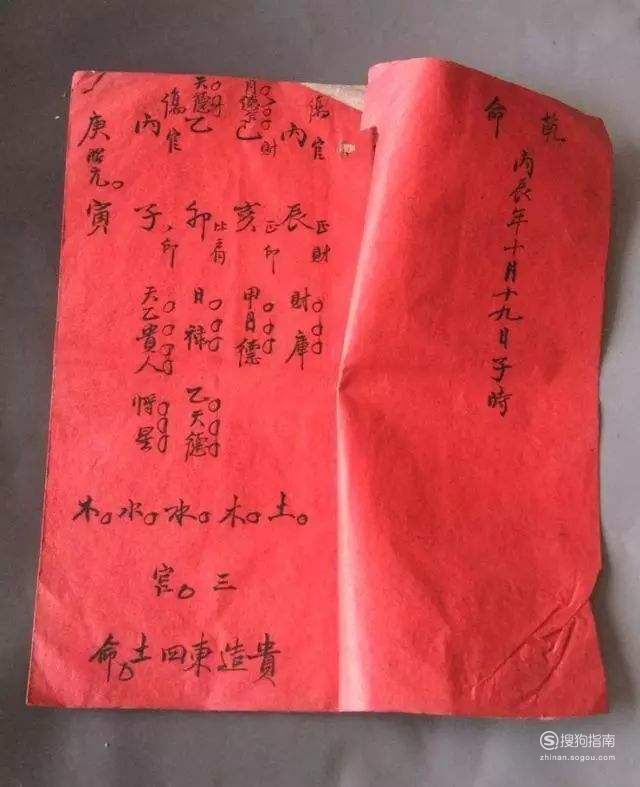 乾
命
丙辰年十月十九日子時
傷官
丙
辰
正財
財庫
月德合
己
財
亥
正印
甲月德
天德
乙
卯
比肩
日祿
乙天德
傷官
丙
子
印
天乙貴人
將星
庚
寅
木水水木土
宮三
貴造東四土命
搜狗指南
zhinan.sogou.com